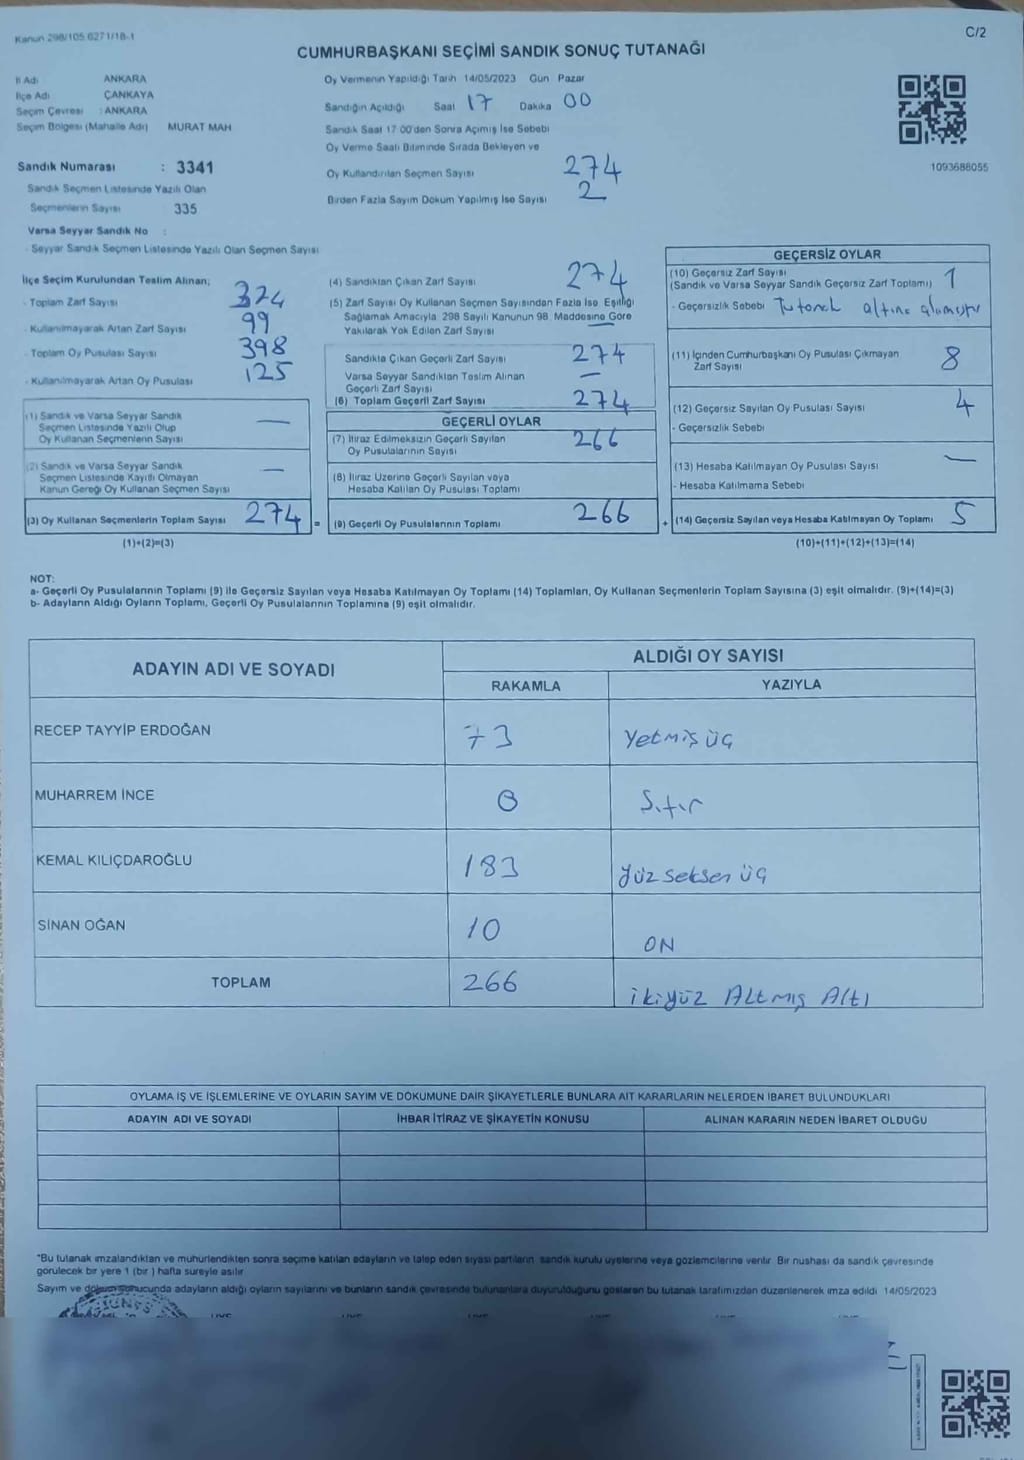 Kanun 298/105 6271/18-1
C/2
CUMHURBAŞKANI SEÇİMİ SANDIK SONUÇ TUTANAĞI
İl Adı ANKARA
İlçe Adı ÇANKAYA
Seçim Çevresi : ANKARA
Seçim Bölgesi (Mahalle Adı) MURAT MAH
Sandık Numarası : 3341
Sandık Seçmen Listesinde Yazılı Olan
Seçmenlerin Sayısı 335
Varsa Seyyar Sandık No :
- Seyyar Sandık Seçmen Listesinde Yazılı Olan Seçmen Sayısı
Oy Vermenin Yapıldığı Tarih 14/05/2023 Gün Pazar
Sandığın Açıldığı Saat 17 Dakika 00
Sandık Saat 17 00'den Sonra Açımış İse Sebebi
Oy Verme Saati Bitiminde Sırada Bekleyen ve
Oy Kullandırılan Seçmen Sayısı 274
Birden Fazla Sayım Döküm Yapılmış İse Sayısı 2
1093688055
İlçe Seçim Kurulundan Teslim Alınan;
- Toplam Zarf Sayısı 324
- Kullanılmayarak Artan Zarf Sayısı 99
- Toplam Oy Pusulası Sayısı 398
- Kullanılmayarak Artan Oy Pusulası 125
(1) Sandık ve Varsa Seyyar Sandık
Seçmen Listesinde Yazılı Olup
Oy Kullanan Seçmenlerin Sayısı —
(2) Sandık ve Varsa Seyyar Sandık
Seçmen Listesinde Kayıtlı Olmayan
Kanun Gereği Oy Kullanan Seçmen Sayısı —
(3) Oy Kullanan Seçmenlerin Toplam Sayısı 274
(1)+(2)=(3)
(4) Sandıktan Çıkan Zarf Sayısı 274
(5) Zarf Sayısı Oy Kullanan Seçmen Sayısından Fazla İse Eşitliği
Sağlamak Amacıyla 298 Sayılı Kanunun 98 Maddesine Göre
Yakılarak Yok Edilen Zarf Sayısı —
Sandıkta Çıkan Geçerli Zarf Sayısı 274
Varsa Seyyar Sandıktan Teslim Alınan
Geçerli Zarf Sayısı —
(6) Toplam Geçerli Zarf Sayısı 274
GEÇERLİ OYLAR
(7) İtiraz Edilmeksizin Geçerli Sayılan
Oy Pusulalarının Sayısı 266
(8) İtiraz Üzerine Geçerli Sayılan veya
Hesaba Katılan Oy Pusulası Toplamı
= (9) Geçerli Oy Pusulalarının Toplamı 266
GEÇERSİZ OYLAR
(10) Geçersiz Zarf Sayısı
(Sandık ve Varsa Seyyar Sandık Geçersiz Zarf Toplamı) 1
- Geçersizlik Sebebi Tutanak altına alınmıştır
(11) İçinden Cumhurbaşkanı Oy Pusulası Çıkmayan
Zarf Sayısı 8
(12) Geçersiz Sayılan Oy Pusulası Sayısı 4
- Geçersizlik Sebebi
(13) Hesaba Katılmayan Oy Pusulası Sayısı —
- Hesaba Katılmama Sebebi
+ (14) Geçersiz Sayılan veya Hesaba Katılmayan Oy Toplamı 5
(10)+(11)+(12)+(13)=(14)
NOT:
a- Geçerli Oy Pusulalarının Toplamı (9) ile Geçersiz Sayılan veya Hesaba Katılmayan Oy Toplamı (14) Toplamları, Oy Kullanan Seçmenlerin Toplam Sayısına (3) eşit olmalıdır. (9)+(14)=(3)
b- Adayların Aldığı Oyların Toplamı, Geçerli Oy Pusulalarının Toplamına (9) eşit olmalıdır.
ADAYIN ADI VE SOYADI
ALDIĞI OY SAYISI
RAKAMLA YAZIYLA
RECEP TAYYİP ERDOĞAN 73 Yetmiş üç
MUHARREM İNCE 0 Sıfır
KEMAL KILIÇDAROĞLU 183 Yüz seksen üç
SİNAN OĞAN 10 ON
TOPLAM 266 ikiyüz Altmış Altı
OYLAMA İŞ VE İŞLEMLERİNE VE OYLARIN SAYIM VE DÖKÜMÜNE DAİR ŞİKAYETLERLE BUNLARA AİT KARARLARIN NELERDEN İBARET BULUNDUKLARI
ADAYIN ADI VE SOYADI İHBAR İTİRAZ VE ŞİKAYETİN KONUSU ALINAN KARARIN NEDEN İBARET OLDUĞU
"Bu tutanak imzalandıktan ve mühürlendikten sonra seçime katılan adayların ve talep eden siyasi partilerin sandık kurulu üyelerine veya gözlemcilerine verilir Bir nüshası da sandık çevresinde
görülecek bir yere 1 (bir ) hafta süreyle asılır
Sayım ve döküm sonucunda adayların aldığı oyların sayılarını ve bunların sandık çevresinde bulunanlara duyurulduğunu gösteren bu tutanak tarafımızdan düzenlenerek imza edildi 14/05/2023